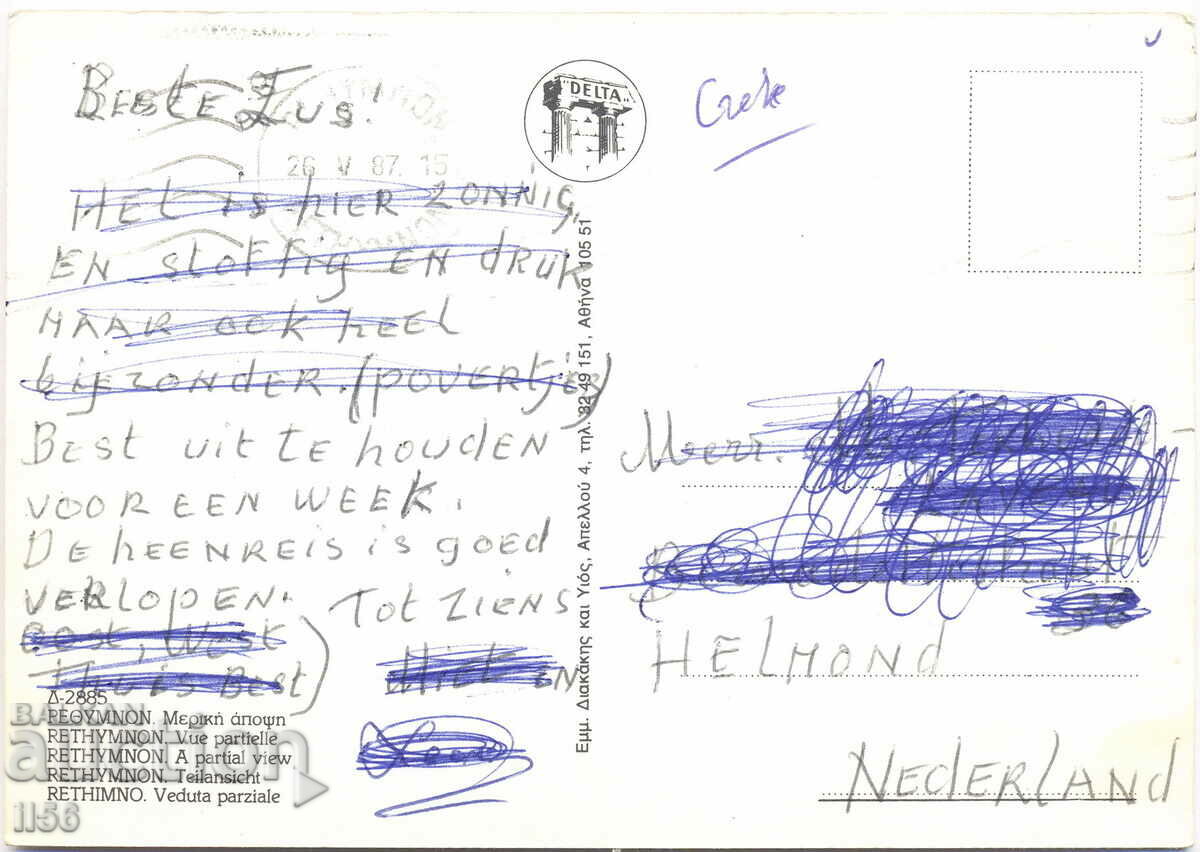 BESTE ZUS!
26 V 87. 15
HET is HIER ZONNIG,
EN stoffig EN DRUK
MAAR OOK HEEL
bijzonder. (povertjes)
BEST uit te houden
VOOR EEN WEEK.
DE HEENREIS is goed
VERLOPEN.
Oost, West
Thuis Best)
TOT ZIENS
EN
"DELTA"
Crete
Εμμ. Διακάκης και Υιός, Απελλού 4, τηλ. 32 49 151, Αθήνα 105 51
Mevr.
HELMOND
NEDERLAND
Δ-2885
ΡΕΘΥΜΝΟΝ. Μερική άποψη
RETHYMNON. Vue partielle
RETHYMNON. A partial view
RETHYMNON. Teilansicht
RETHIMNO. Veduta parziale
BALKAN
auction
1156